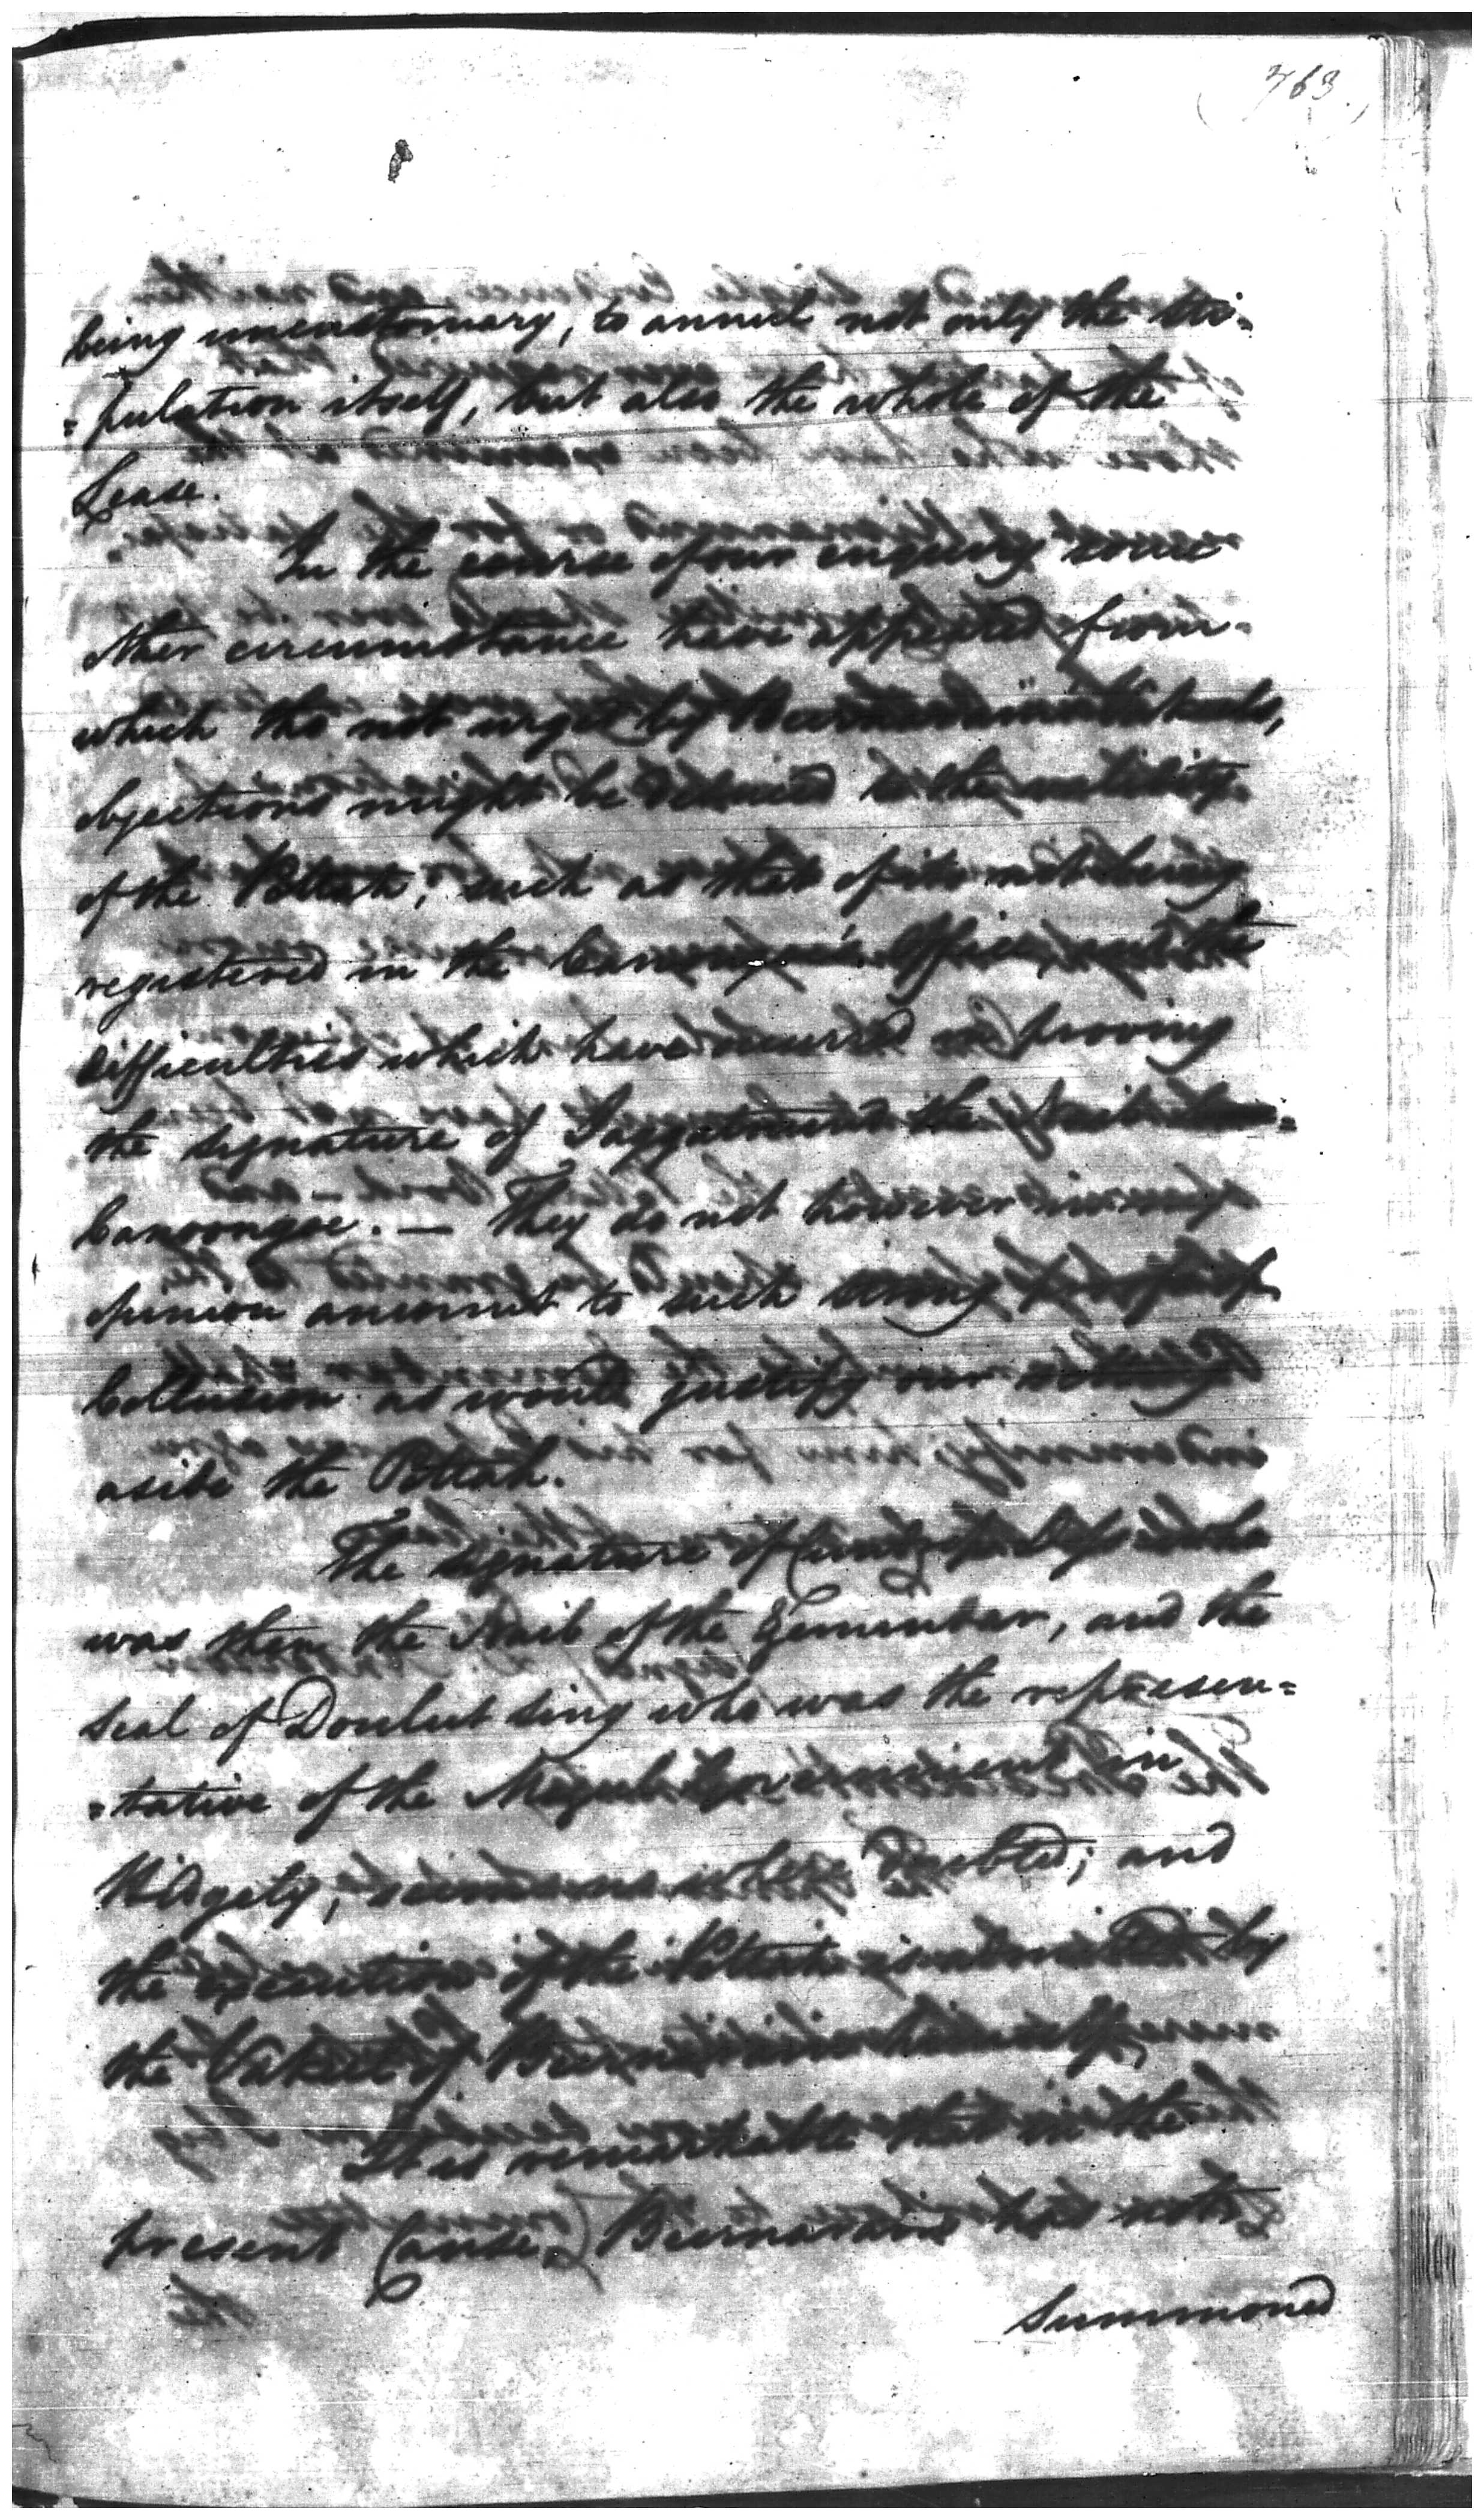 (763.)
being uncustomary, to annul not only the sti=
=pulation itself, but also the whole of the
Lease.
In the course of our enquiry some
other circumstance have appeared from
which tho not urged by Burnarain's Vakeels,
objections might be deduced to the validity
of the Pottah; such as that of its not being
registered in the Canongoe's Office, and the
difficulties which have occurred in proving
the signature of the
Canoongoe. — They do not however in my
opinion amount to such strong proofs of
Collusion as would justify our setting
aside the Pottah.
The signature of who
was then the Naib of the Zemindar, and the
seal of Doulut Sing who was the represen=
=tative of the Mogul Government in
Hidgely, seems no where doubted; and
the execution of the Pottah is admitted by
the Vakeel of Burnarain himself,
It is remarkable that in the
present Cause, Burnarain has not
summoned